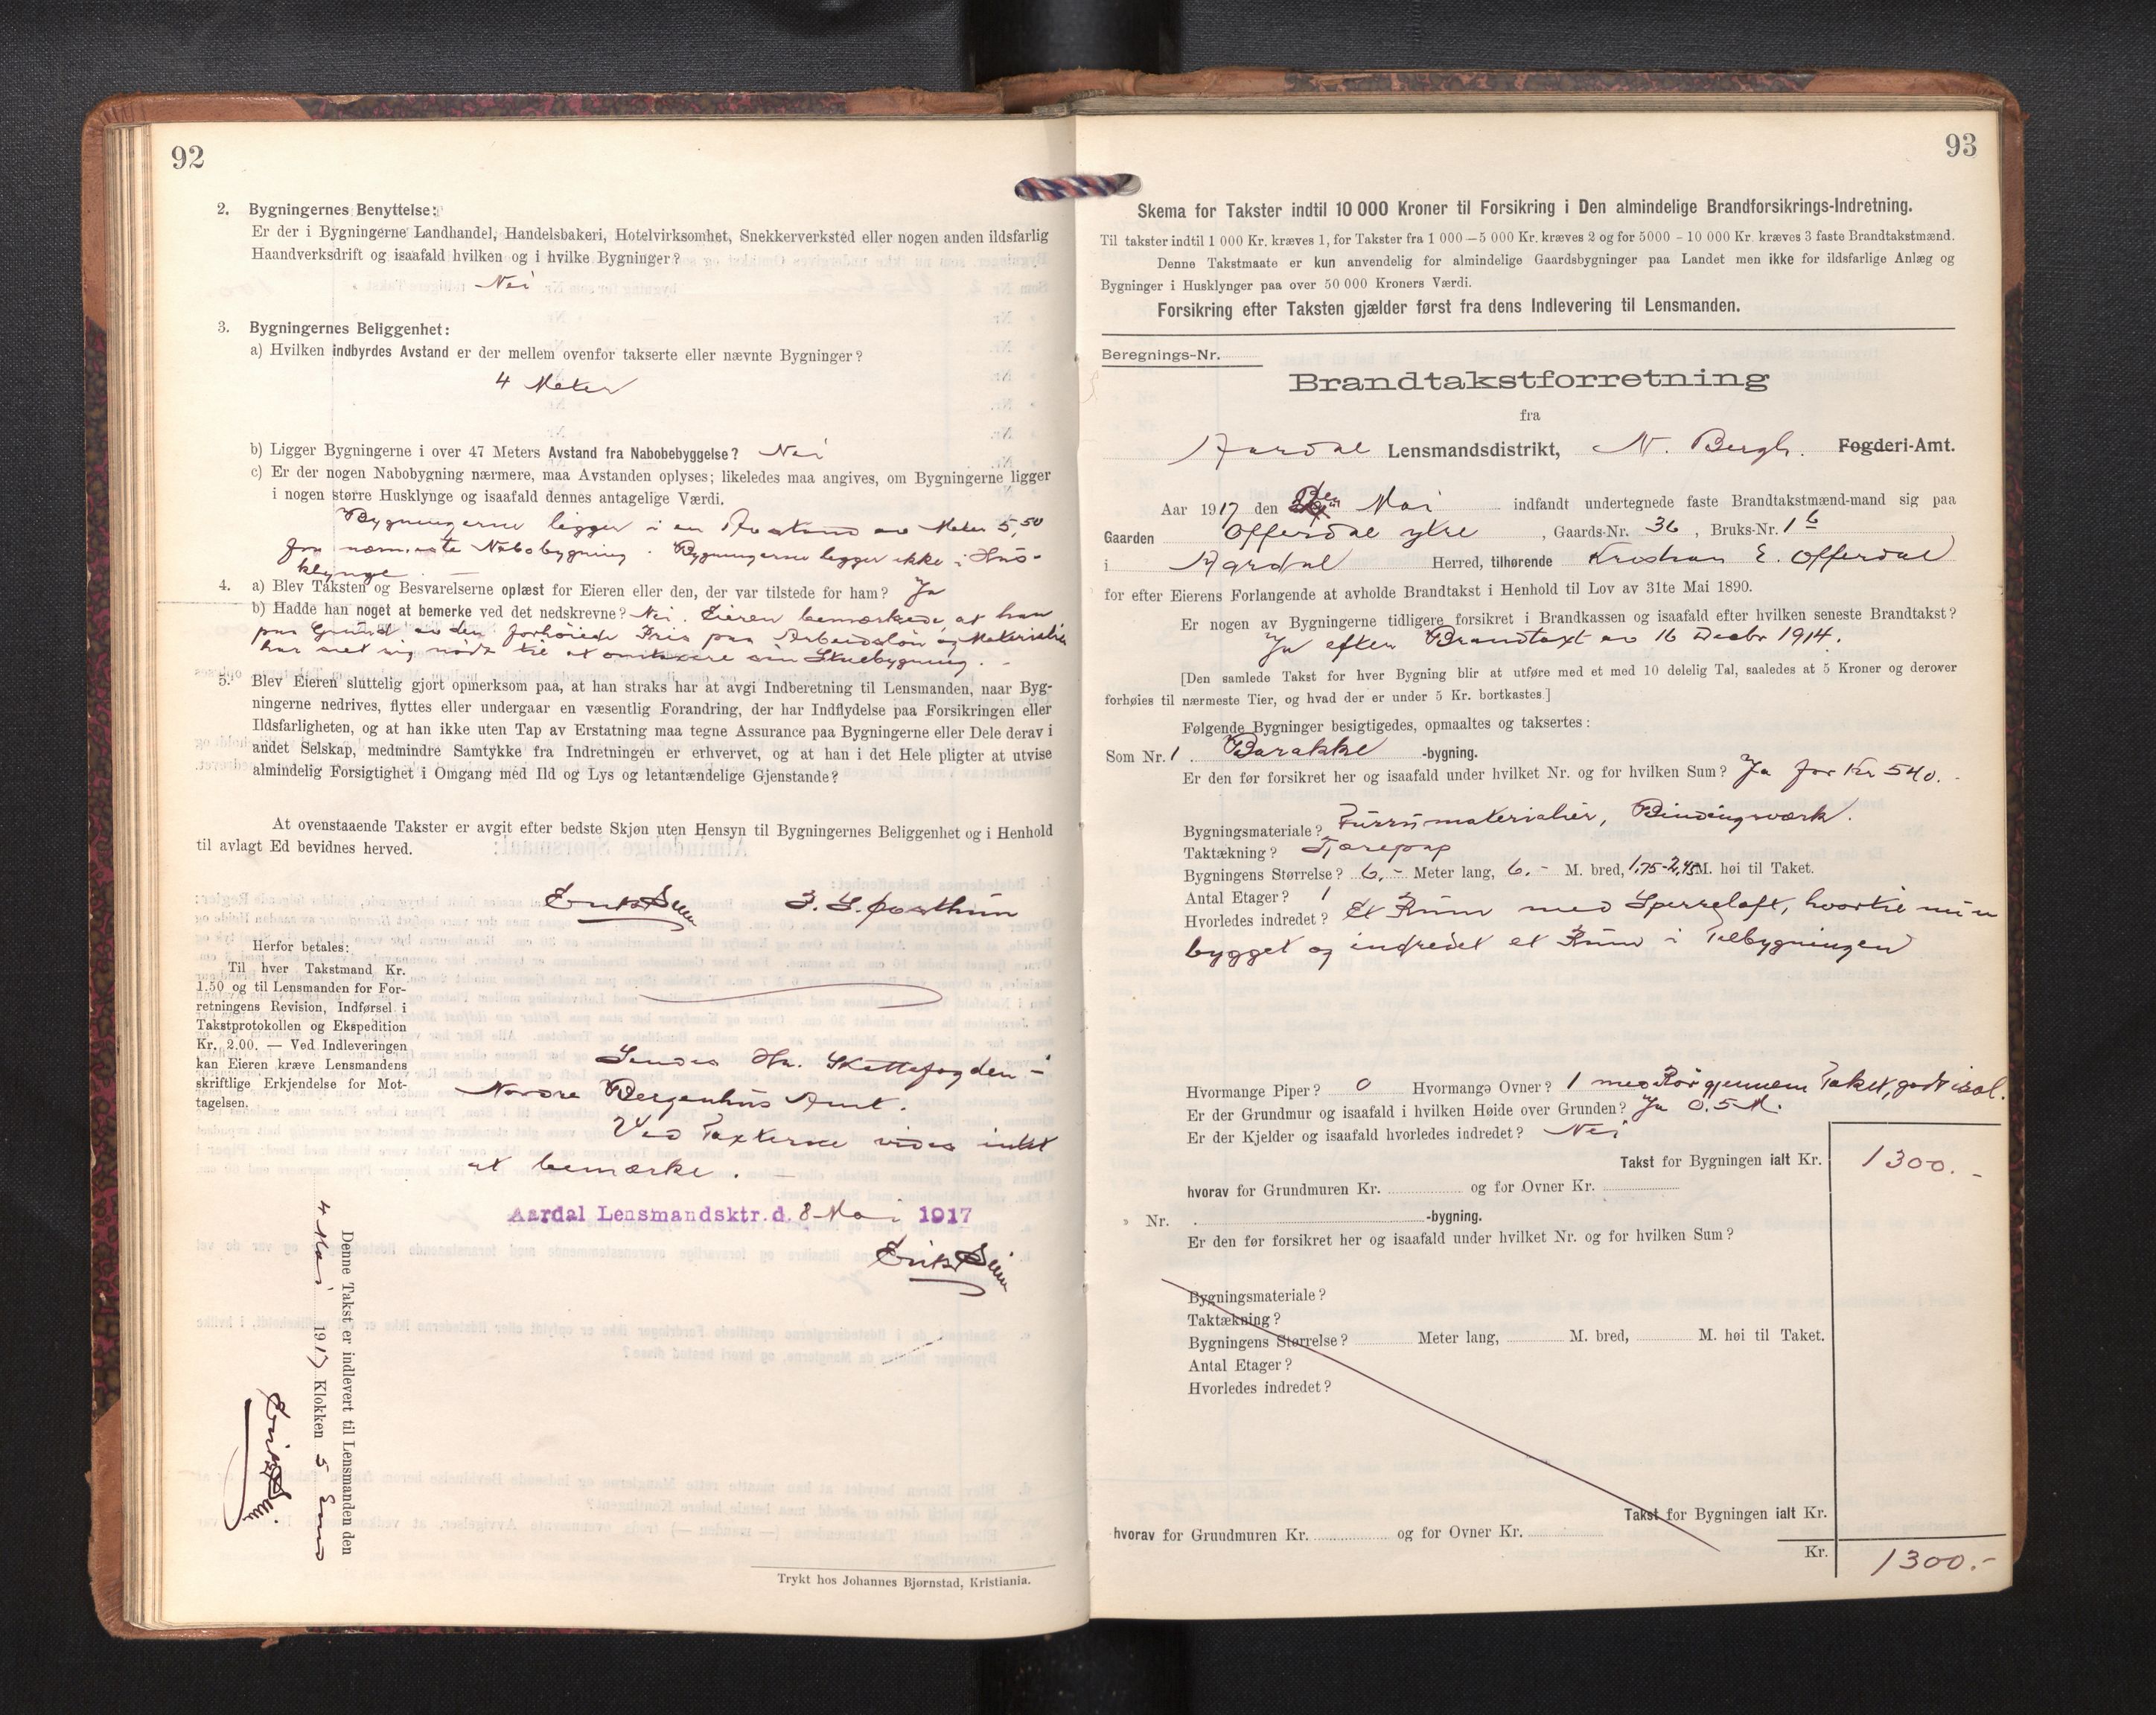 92
2. Bygningernes Benyttelse:
Er der i Bygningerne Landhandel, Handelsbakeri, Hotelvirksomhet, Snekkerverksted eller nogen anden ildsfarlig
Haandverksdrift og isaafald hvilken og i hvilke Bygninger?
Nei
3. Bygningernes Beliggenhet:
a) Hvilken indbyrdes Avstand er der mellem ovenfor takserte eller nævnte Bygninger?
4 Meter
b) Ligger Bygningerne i over 47 Meters Avstand fra Nabobebyggelse? Nei
c) Er der nogen Nabobygning nærmere, maa Avstanden oplyses; likeledes maa angives, om Bygningerne ligger
i nogen større Husklynge og isaafald dennes antagelige Værdi.
Bygningerne ligger i en Avstand av Meter 5,50
fra nærmeste Nabobygning. Bygningerne ligger ikke i Hus-
klynge.
4. a) Blev Taksten og Besvarelserne oplæst for Eieren eller den, der var tilstede for ham? Ja
b) Hadde han noget at bemerke ved det nedskrevne? Nei. Eieren bemærkede, at han
paa Grund av den forhøiede Pris paa Arbeidsløn og Materialier
har set sig nødt til at omtaxere sin Stuebygning. -
5. Blev Eieren sluttelig gjort opmerksom paa, at han straks har at avgi Indberetning til Lensmanden, naar Byg-
ningerne nedrives, flyttes eller undergaar en væsentlig Forandring, der har Indflydelse paa Forsikringen eller
Ildsfarligheten, og at han ikke uten Tap av Erstatning maa tegne Assurance paa Bygningerne eller Dele derav i
andet Selskap, medmindre Samtykke fra Indretningen er erhvervet, og at han i det Hele pligter at utvise
almindelig Forsigtighet i Omgang med Ild og Lys og letantændelige Gjenstande?
At ovenstaaende Takster er avgit efter bedste Skjøn uten Hensyn til Bygningernes Beliggenhet og i Henhold
til avlagt Ed bevidnes herved.
Herfor betales:
Til hver Takstmand Kr.
1.50 og til Lensmanden for For-
retningens Revision, Indførsel i
Takstprotokollen og Ekspedition
Kr. 2.00. — Ved Indleveringen
kan Eieren kræve Lensmandens
skriftlige Erkjendelse for Mot-
tagelsen.
Sendes Hr. Skattefogden i
Nordre Bergenhus Amt.
Ved Taxterne vides intet
at bemærke. -
Aardal Lensmandsktr. d. 8 Mai 1917
Denne Takst er indlevert til Lensmanden den
4 Mai 1917 Klokken 5 Em
Trykt hos Johannes Bjørnstad, Kristiania.
93
Skema for Takster indtil 10 000 Kroner til Forsikring i Den almindelige Brandforsikrings-Indretning.
Til takster indtil 1 000 Kr. kræves 1, for Takster fra 1 000 — 5 000 Kr. kræves 2 og for 5000 - 10 000 Kr. kræves 3 faste Brandtakstmænd.
Denne Takstmaate er kun anvendelig for almindelige Gaardsbygninger paa Landet men ikke for ildsfarlige Anlæg og
Bygninger i Husklynger paa over 50 000 Kroners Værdi.
Forsikring efter Taksten gjælder først fra dens Indlevering til Lensmanden.
Beregnings-Nr.
Brandtakstforretning
fra
Aardal Lensmandsdistrikt, N. Bergh. Fogderi-Amt.
Aar 1917 den Mai indfandt undertegnede faste Brandtakstmænd-mand sig paa
Gaarden Offerdal ytre, Gaards-Nr. 36, Bruks-Nr. 1 6
i Aardal Herred, tilhørende Kristian E. Offerdal
for efter Eierens Forlangende at avholde Brandtakst i Henhold til Lov av 31te Mai 1890.
Er nogen av Bygningerne tidligere forsikret i Brandkassen og isaafald efter hvilken seneste Brandtakst?
Ja efter Brandtaxt av 16 Decbr 1914.
[Den samlede Takst for hver Bygning blir at utføre med et med 10 delelig Tal, saaledes at 5 Kroner og derover
forhøies til nærmeste Tier, og hvad der er under 5 Kr. bortkastes.]
Følgende Bygninger besigtigedes, opmaaltes og taksertes:
Som Nr. 1. Barakke -bygning.
Er den før forsikret her og isaafald under hvilket Nr. og for hvilken Sum? Ja for Kr 540. -
Bygningsmateriale? Furumaterialier, Bindingsværk.
Taktækning? Tjærepap
Bygningens Størrelse? 6,- Meter lang, 6.- M. bred, 1,75-2,45 M. høi til Taket.
Antal Etager? 1
Hvorledes indredet? Et Rum med Sperreloft, hvortil nu er
bygget og indredet et Rum i Tilbygningen
Hvormange Piper? 0 Hvormange Ovner? 1 med Rør gjennem Taket, godt isol.
Er der Grundmur og isaafald i hvilken Høide over Grunden? Ja 0.5 M.
Er der Kjelder og isaafald hvorledes indredet? Nei
Takst for Bygningen ialt Kr. 1300.-
hvorav for Grundmuren Kr. og for Ovner Kr.
» Nr. . -bygning.
Er den før forsikret her og isaafald under hvilket Nr. og for hvilken Sum?
Bygningsmateriale?
Taktækning?
Bygningens Størrelse? Meter lang, M. bred, M. høi til Taket.
Antal Etager?
Hvorledes indredet?
Takst for Bygningen ialt Kr.
hvorav for Grundmuren Kr. og for Ovner Kr.
Kr. 1300.-